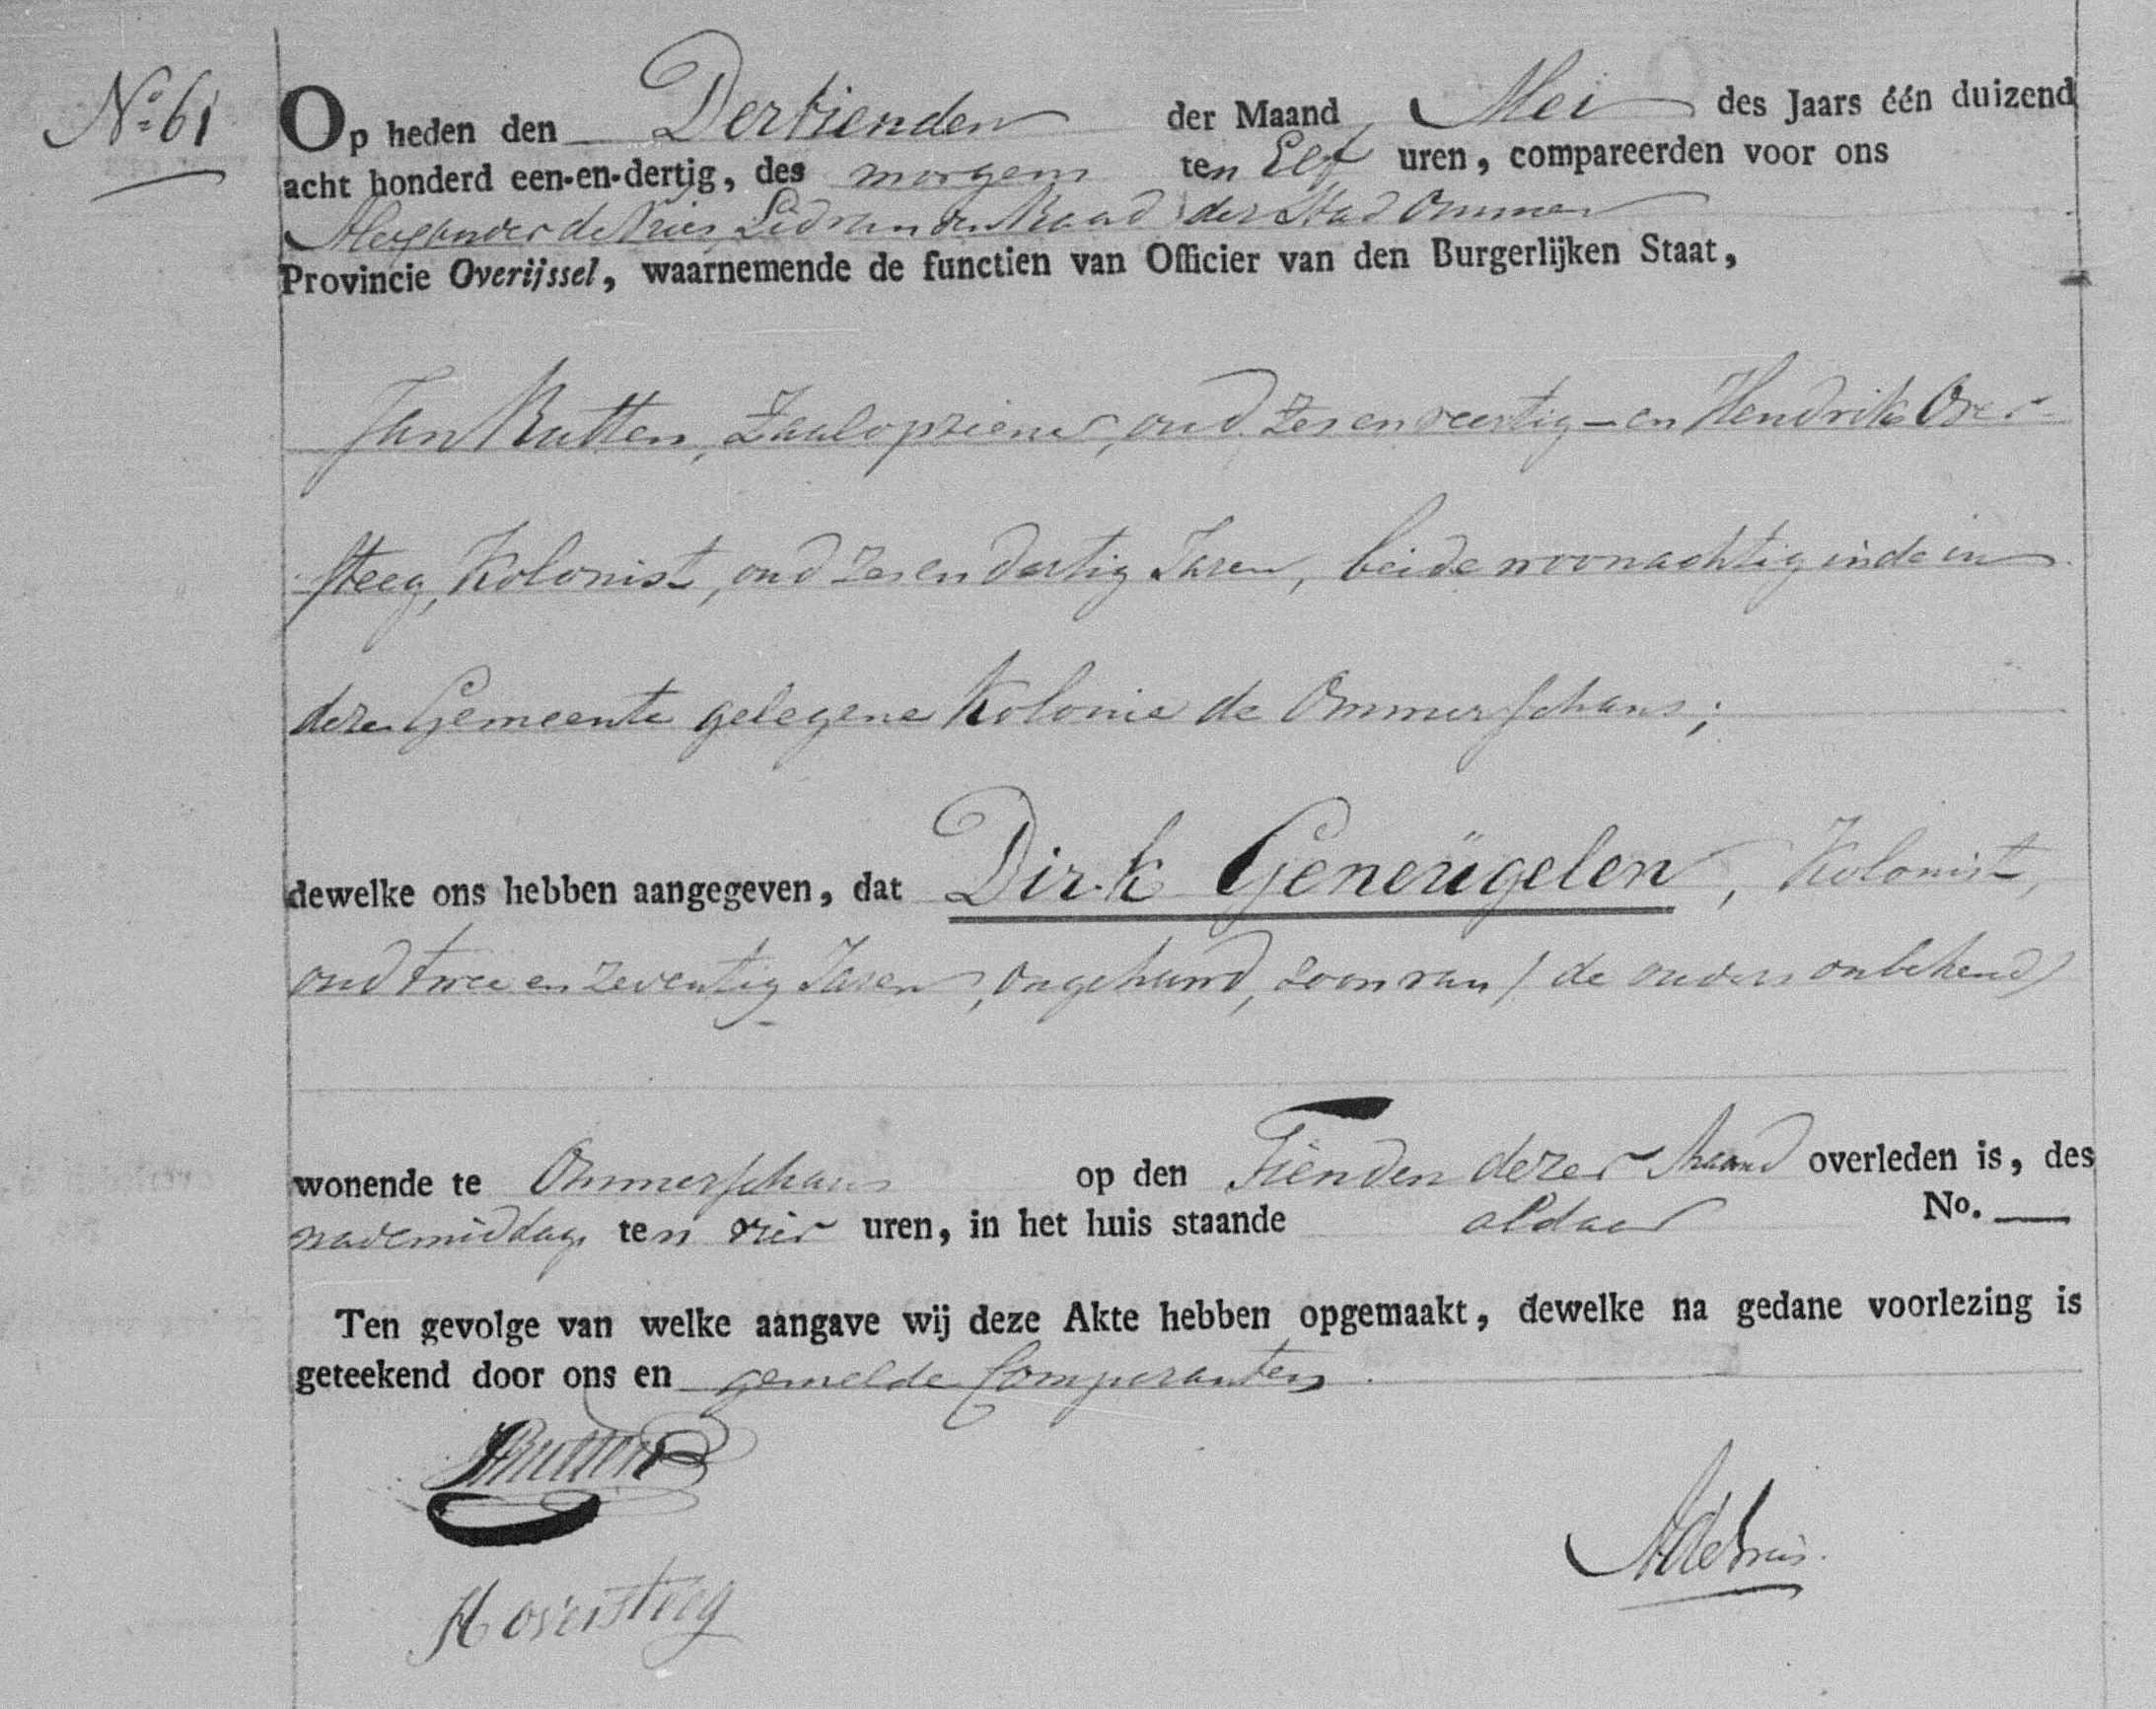 No. 61
Op heden den Dertienden der Maand Mei des Jaars één duizend
acht honderd een-en-dertig, des morgens ten Elf uren, compareerden voor ons
Alexander de Vries, Lid van den Raad der Stad Ommen
Provincie Overijssel, waarnemende de functien van Officier van den Burgerlijken Staat,
Jan Rutten, Zaalopziener, oud zes en veertig - en Hendrik Over-
steeg, Kolonist, oud zes en dertig Jaren, beide woonachtig in de in
deze Gemeente gelegene Kolonie de Ommerschans;
dewelke ons hebben aangegeven, dat Dirk Geneügelen, Kolonist,
oud twee en zeventig Jaren, ongehuwd, zoon van / de ouders onbekend /
wonende te Ommerschans op den Tienden dezer Maand overleden is, des
nademiddags ten vier uren, in het huis staande aldaar No. —
Ten gevolge van welke aangave wij deze Akte hebben opgemaakt, dewelke na gedane voorlezing is
geteekend door ons en gemelde Comparanten.
JRutten
AdeVries.
H oversteeg